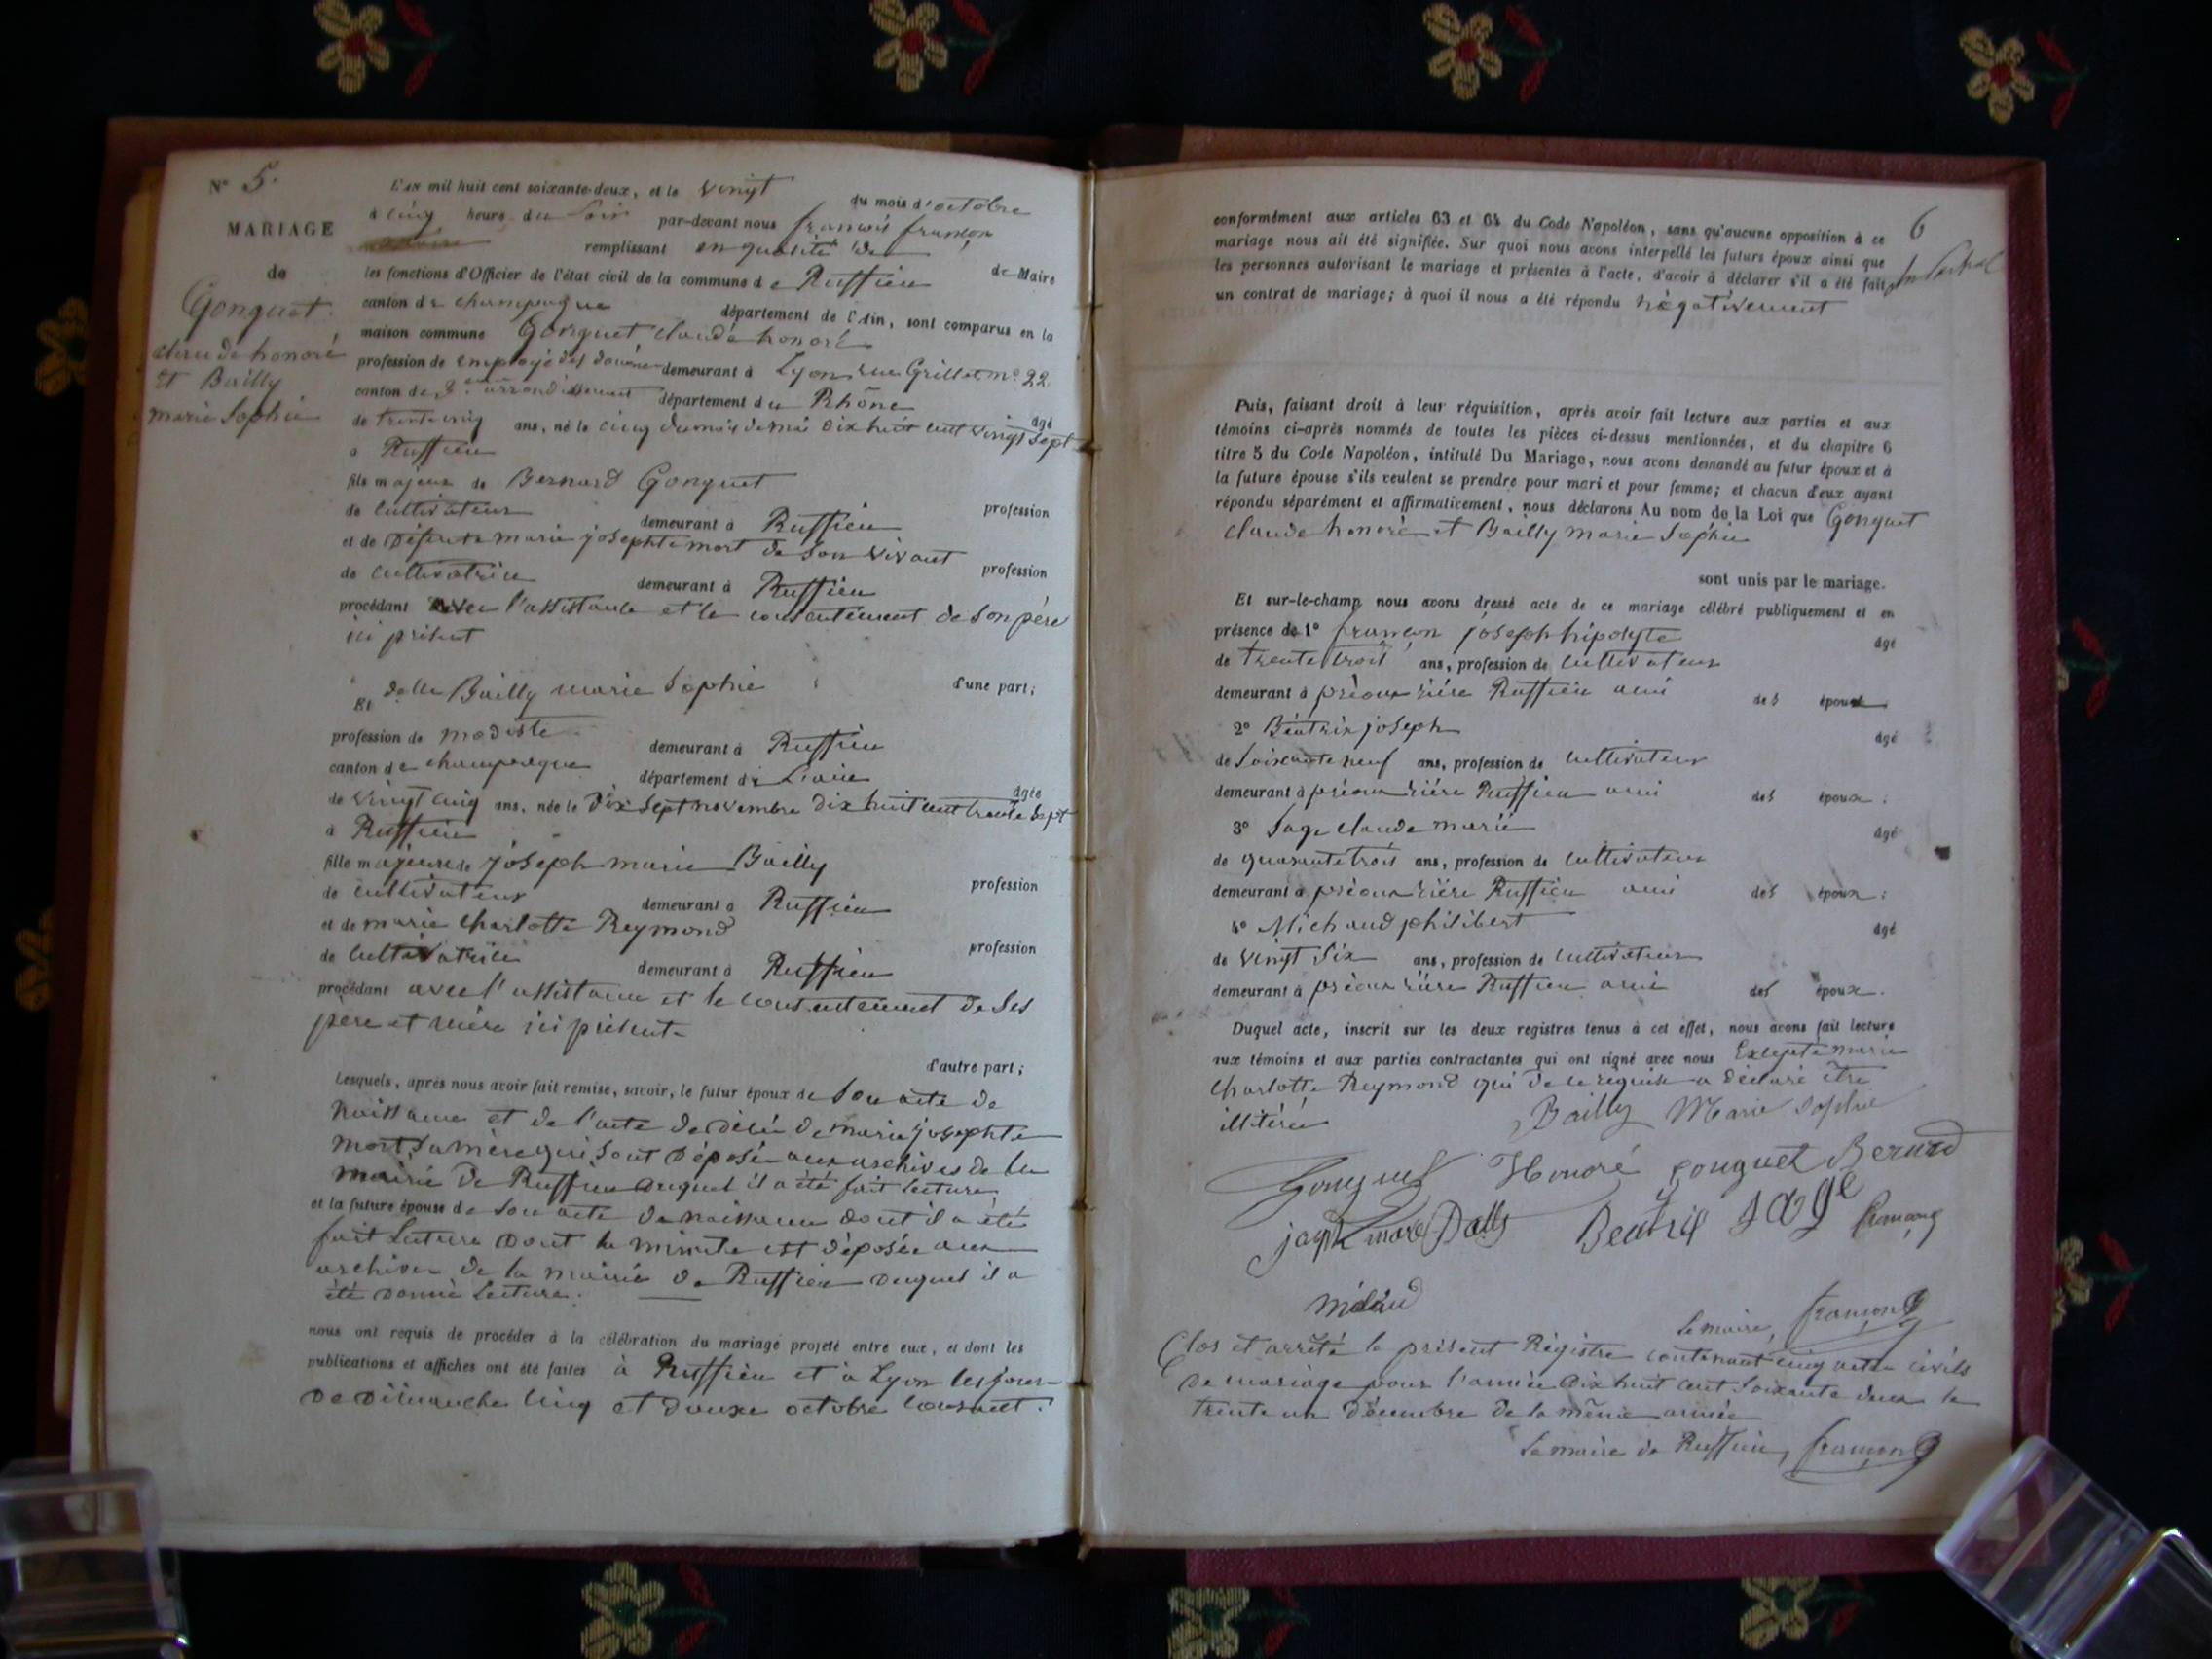 N° 5.
MARIAGE
de
Gonguet
claude honoré
et Bailly
marie Sophie
L'an mil huit cent soixante-deux, et le vingt
du mois d'octobre
à cinq heures du soir par-devant nous françois françon
remplissant en qualité de
de Maire
les fonctions d'Officier de l'état civil de la commune de Ruffieu
canton de champagne département de l'Ain, sont comparus en la
maison commune Gonguet, claude honoré
profession de employé des douanes demeurant à Lyon rue Grillet, n° 22
canton de arrondissement département du Rhône
âgé
de trente cinq ans, né le cinq du mois de mai dix huit cent vingt sept
à Ruffieu
fils majeur de Bernard Gonguet
profession
de cultivateur demeurant à Ruffieu
et de défunte marie josephte mort de son vivant
profession
de cultivatrice demeurant à Ruffieu
procédant avec l'assistance et le consentement de son père
ici présent
d'une part;
Et delle Bailly marie Sophie
profession de modiste demeurant à Ruffieu
canton de champagne département de L'ain
âgée
de vingt cinq ans, née le dix sept novembre dix huit cent trente sept
à Ruffieu
fille majeure de joseph marie Bailly
profession
de cultivateur demeurant à Ruffieu
et de marie charlotte Reymond
profession
de cultivatrice demeurant à Ruffieu
procédant avec l'assistance et le consentement de ses
père et mère ici présent
d'autre part;
Lesquels, après nous avoir fait remise, savoir, le futur époux de Son acte de
naissance et de l'acte de décès de marie josephte
mort sa mère qui sont déposé aux archives de la
mairie de Ruffieu auquel il a été fait lecture
et la future épouse de son acte de naissance dont il a été
fait lecture dont la minute est déposée aux
archives de la mairie de Ruffieu duquel il a
été donné lecture.
nous ont requis de procéder à la célébration du mariage projeté entre eux, et dont les
publications et affiches ont été faites à Ruffieu et à Lyon les jours
de dimanche cinq et douze octobre courant.
6
conformément aux articles 63 et 64 du Code Napoléon, sans qu'aucune opposition à ce
mariage nous ait été signifiée. Sur quoi nous avons interpellé les futurs époux ainsi que
les personnes autorisant le mariage et présentes à l'acte, d'avoir à déclarer s'il a été fait
un contrat de mariage; à quoi il nous a été répondu négativement
Puis, faisant droit à leur réquisition, après avoir fait lecture aux parties et aux
témoins ci-après nommés de toutes les pièces ci-dessus mentionnées, et du chapitre 6
titre 5 du Code Napoléon, intitulé Du Mariage, nous avons demandé au futur époux et à
la future épouse s'ils veulent se prendre pour mari et pour femme; et chacun d'eux ayant
répondu séparément et affirmativement, nous déclarons Au nom de la Loi que Gonguet
claude honoré et Bailly marie Sophie
sont unis par le mariage.
Et sur-le-champ nous avons dressé acte de ce mariage célébré publiquement et en
présence de 1° françon joseph hipolyte
âgé
de trente trois ans, profession de cultivateur
demeurant à préoux rière Ruffieu ami des époux
2° Béatrix joseph
âgé
de soixante neuf ans, profession de cultivateur
demeurant à préoux rière Ruffieu ami des époux;
3° Sage claude marie
âgé
de quarante trois ans, profession de cultivateur
demeurant à préoux rière Ruffieu ami des époux;
4° Michaud philibert
âgé
de vingt six ans, profession de cultivateur
demeurant à préoux rière Ruffieu ami des époux.
Duquel acte, inscrit sur les deux registres tenus à cet effet, nous avons fait lecture
aux témoins et aux parties contractantes qui ont signé avec nous Excepté marie
charlotte Reymond qui de ce requise a déclaré être
illitérée
Bailly Marie Sophie
Gonguet Honoré gonguet Bernard
Beatrix Sage françon
Le maire, françon
Clos et arrêté le présent Régistre contenant cinq actes civils
de mariage pour l'année dix huit cent soixante deux le
trente un décembre de la même année
Le maire de Ruffieu, françon